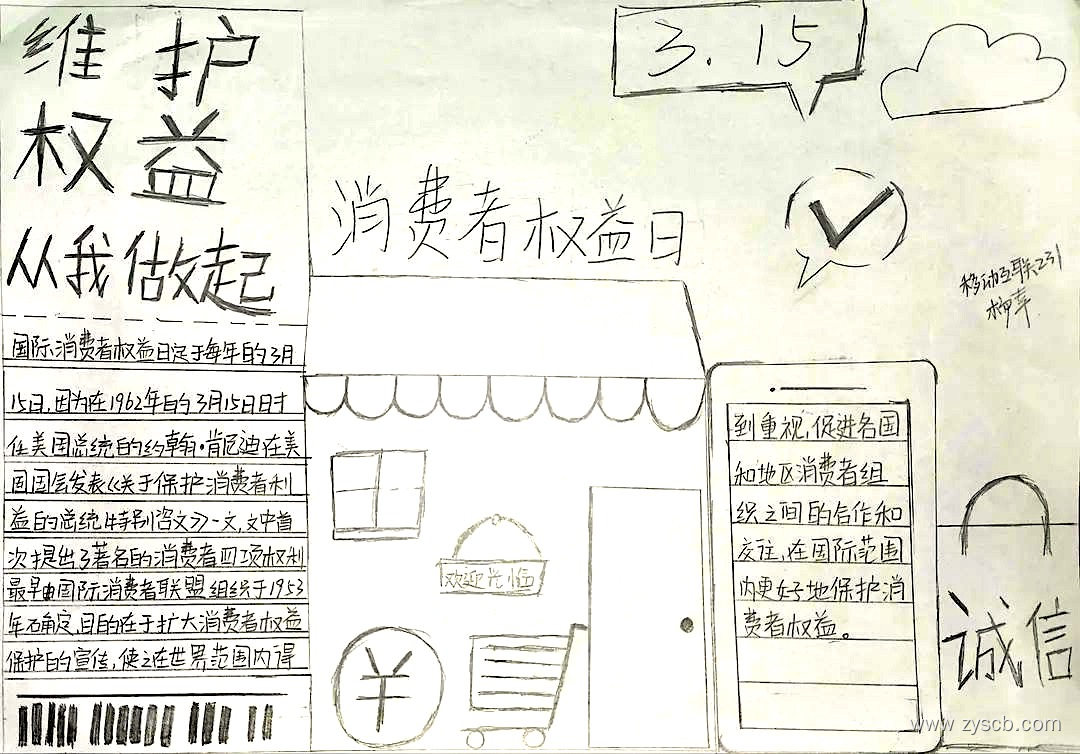 维护
权益
从我做起
国际消费者权益日定于每年的3月
15日,因为在1962年的3月15日时
任美国总统的约翰·肯尼迪在美
国国会发表《关于保护消费者利
益的总统特别咨文》一文,文中首
次提出了著名的消费者四项权利
最早由国际消费者联盟组织于1953
年确定,目的在于扩大消费者权益
保护的宣传,使之在世界范围内得
3.15
消费者权益日
移动互联231
欢迎光临
¥
到重视,促进各国
和地区消费者组
织之间的合作和
交往,在国际范围
内更好地保护消
费者权益。
诚信
www.zyscb.com